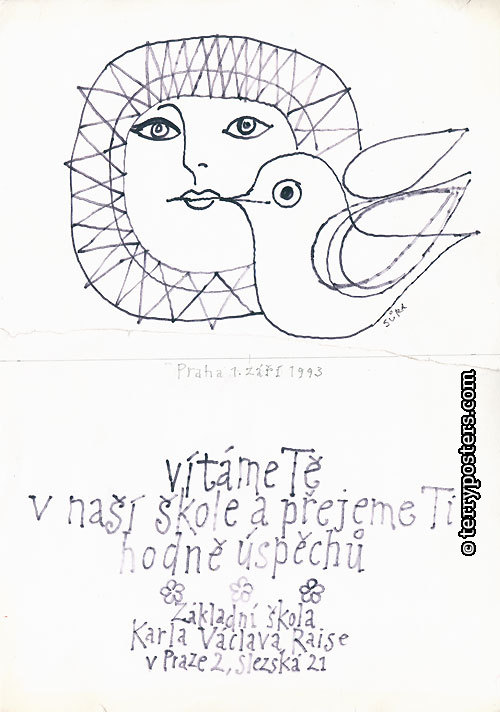 SŮRA
Praha 1. září 1993
vítáme Tě
v naší škole a přejeme Ti
hodně úspěchů
Základní škola
Karla Václava Raise
v Praze 2, Slezská 21
© terryposters.com